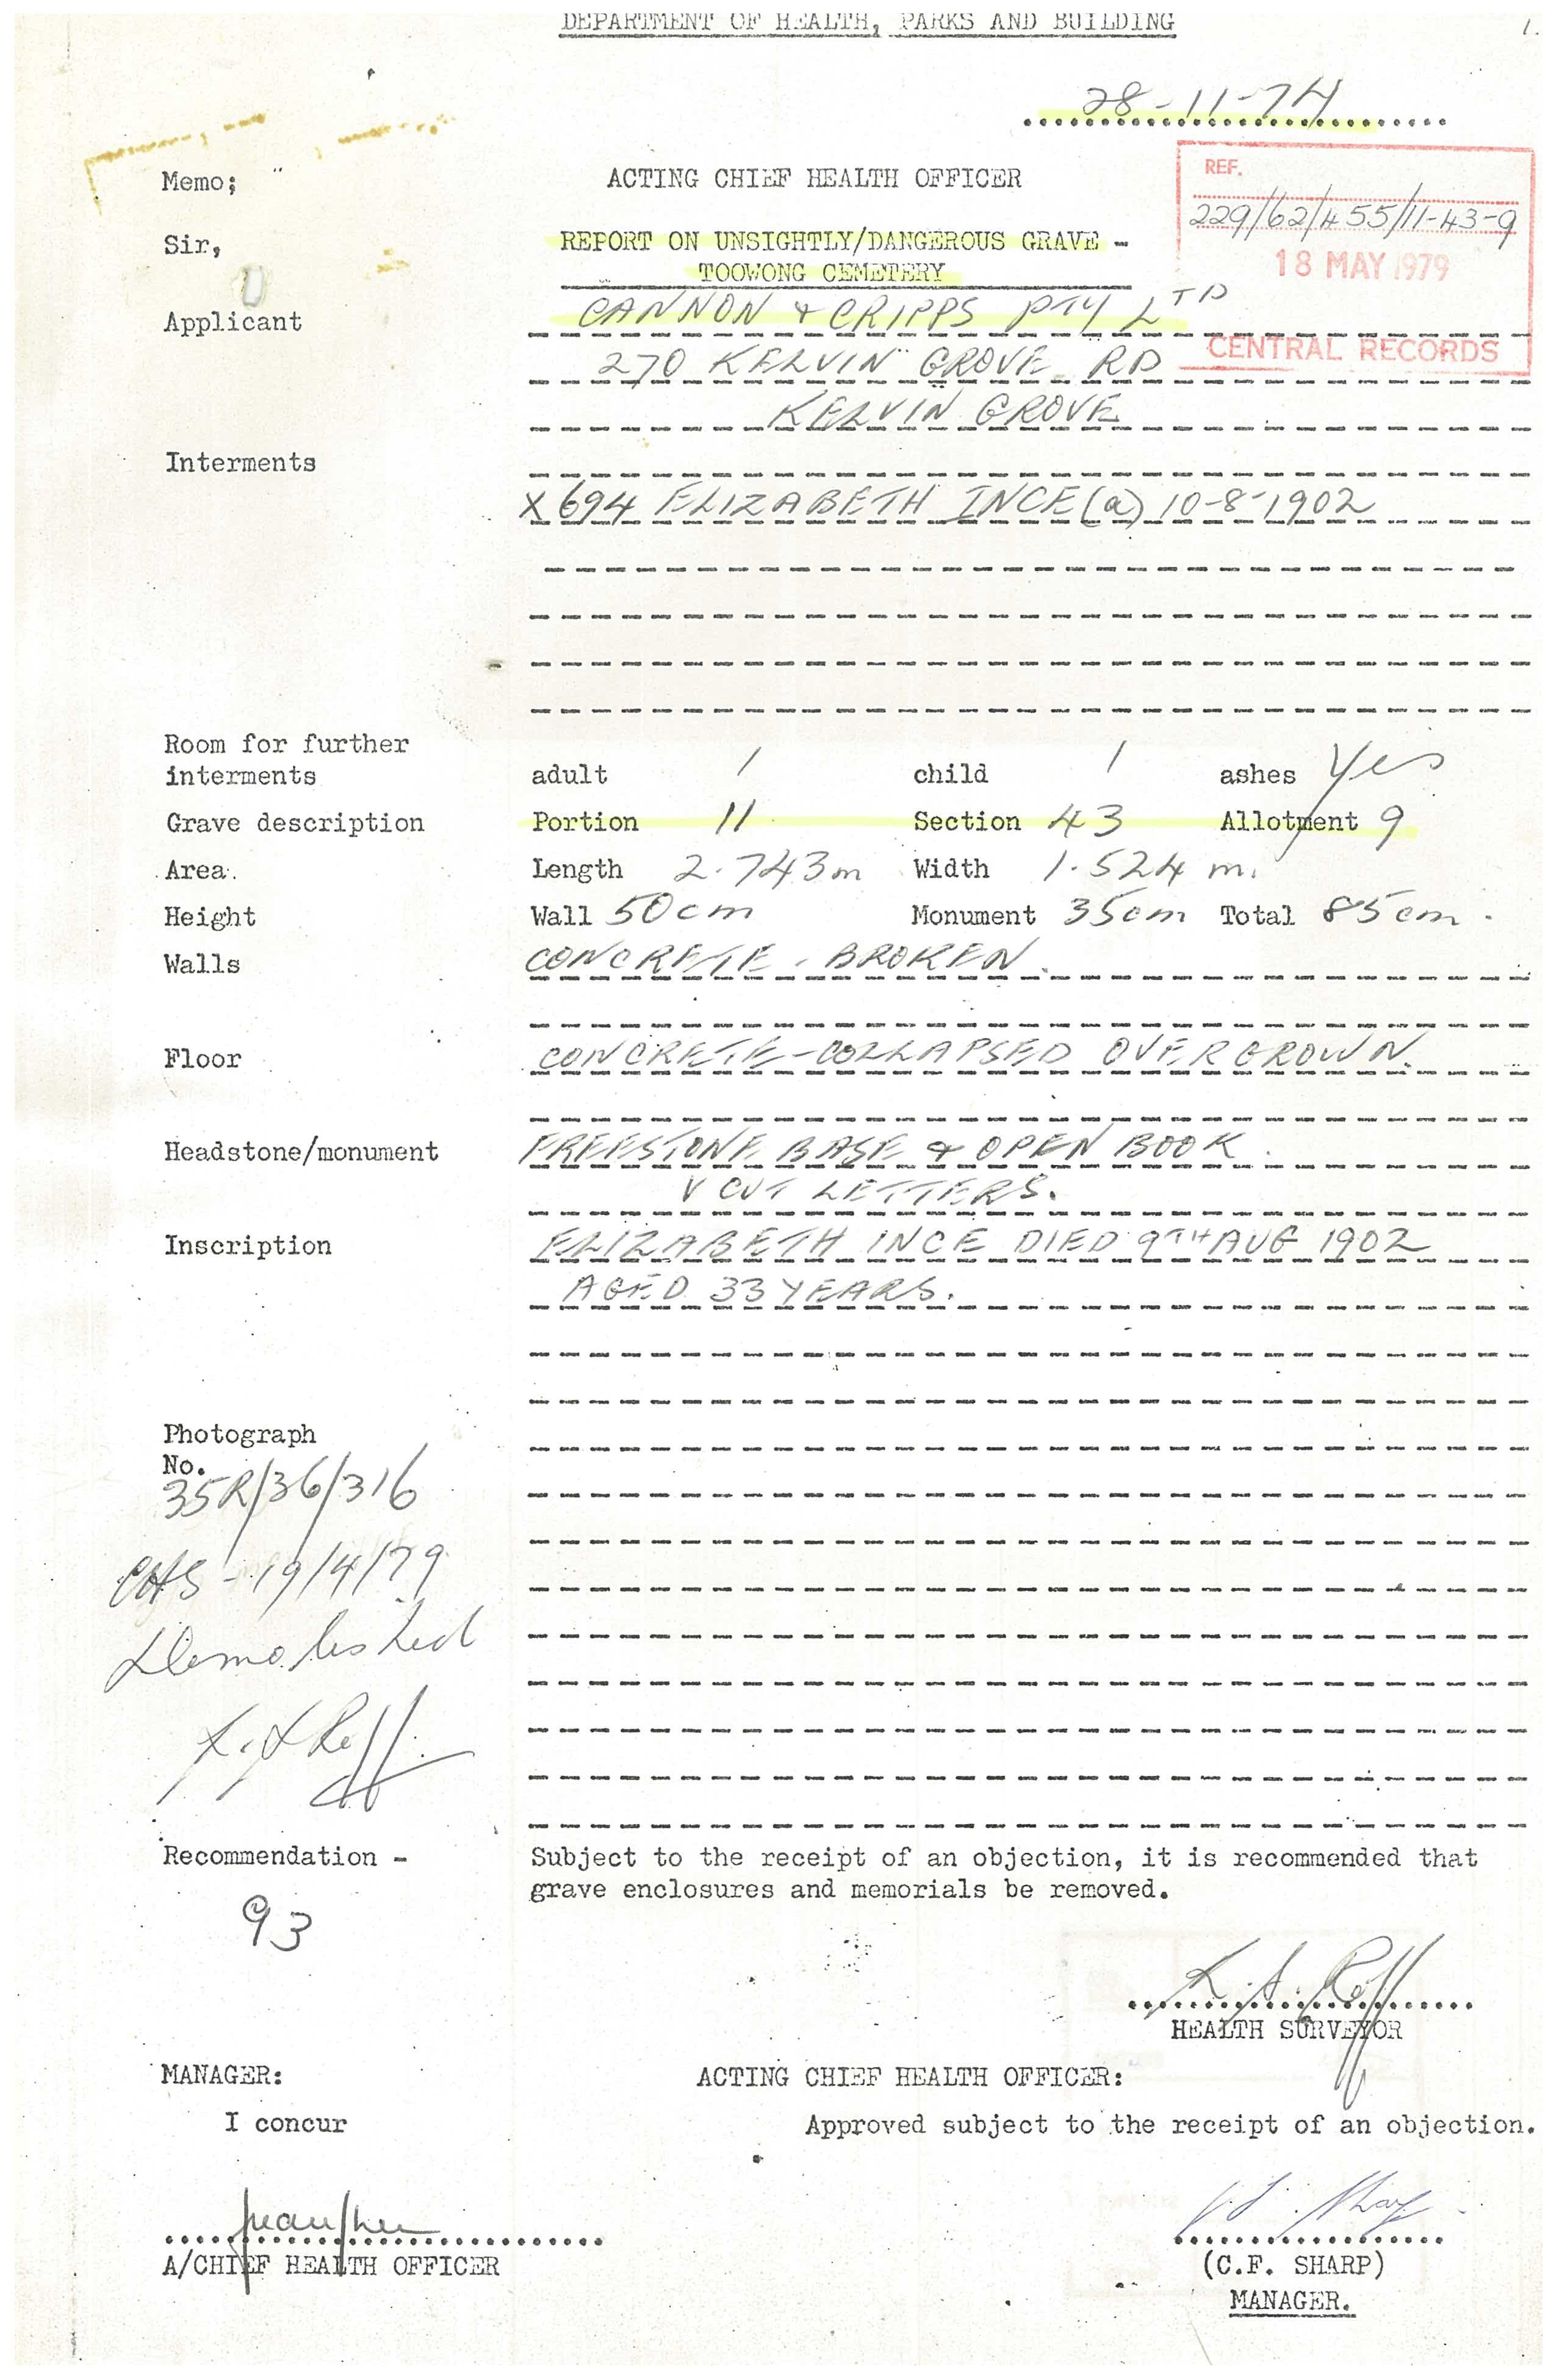 DEPARTMENT OF HEALTH, PARKS AND BUILDING
1.
28-11-74
Memo;
ACTING CHIEF HEALTH OFFICER
REF.
229/62/455/11-43-9
18 MAY 1979
CENTRAL RECORDS
Sir,
REPORT ON UNSIGHTLY/DANGEROUS GRAVE -
TOOWONG CEMETERY
Applicant CANNON & CRIPPS PTY LTD
270 KELVIN GROVE RD
KELVIN GROVE
Interments
X 694 ELIZABETH INCE (a) 10-8-1902
Room for further
interments adult 1 child 1 ashes Yes
Grave description Portion 11 Section 43 Allotment 9
Area Length 2.743m Width 1.524 m.
Height Wall 50cm Monument 35cm Total 85cm.
Walls CONCRETE. BROKEN.
Floor CONCRETE-COLLAPSED OVERGROWN.
Headstone/monument FREESTONE BASE & OPEN BOOK.
V CUT LETTERS.
Inscription ELIZABETH INCE DIED 9TH AUG 1902
AGED 33 YEARS.
Photograph
No.
35R/36/316
- 19/4/79
Demolished
Recommendation - Subject to the receipt of an objection, it is recommended that
grave enclosures and memorials be removed.
93
HEALTH SURVEYOR
MANAGER: ACTING CHIEF HEALTH OFFICER:
I concur Approved subject to the receipt of an objection.
A/CHIEF HEALTH OFFICER (C.F. SHARP)
MANAGER.